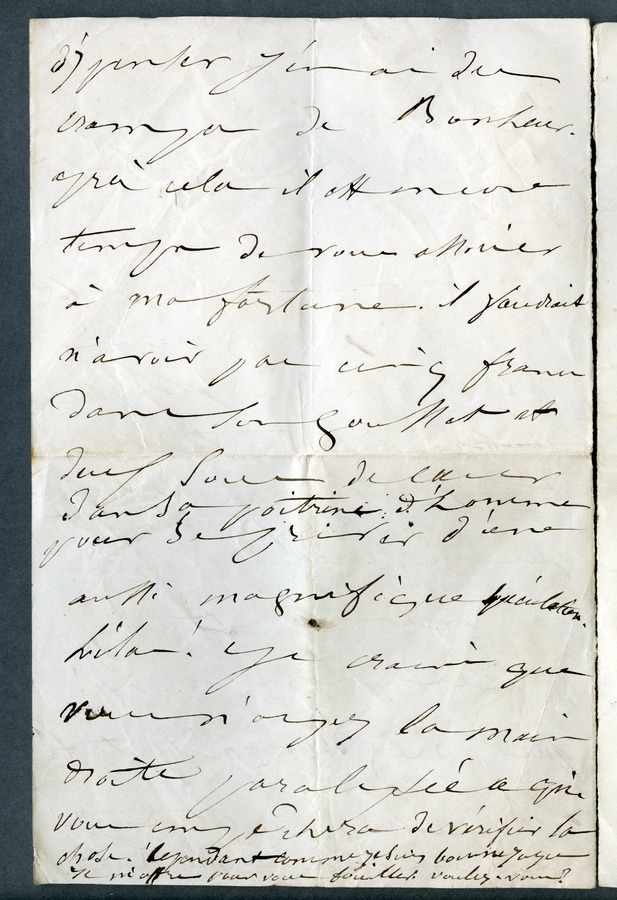 d'y penser j'en ai des
crampes de Bonheur.
après cela il est encore
temps de vous associer
à ma fortune. il faudrait
n'avoir pas cinq francs
dans son gousset et
deux sous de cœur
dans sa poitrine d'homme
pour se priver d'une
aussi magnifique spéculation.
hélas! je crains que
vous n'ayez la main
droite paralysée ce qui
vous empêchera de vérifier la
chose. Cependant comme je suis bonne
je m'offre pour vous fouiller voulez-vous?